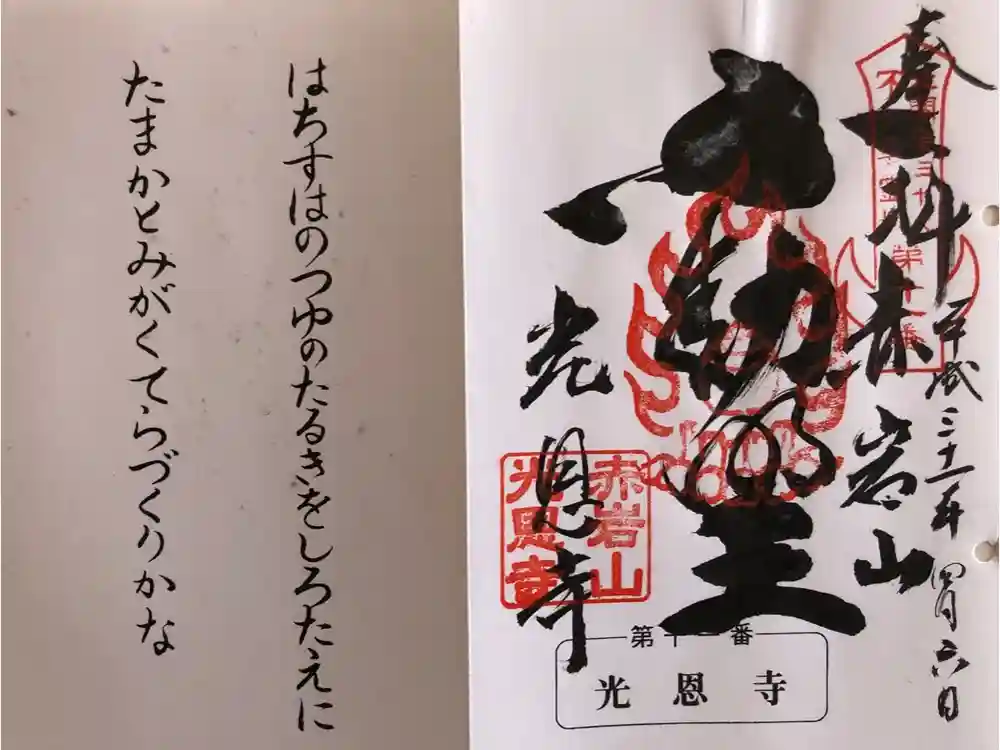 はちすはのつゆのたるきをしろたえに
たまかとみがくてらづくりかな
奉拝
赤岩山
平成三十一年四月六日
不動明王
光恩寺
赤岩山
光恩寺
第十一番
光恩寺